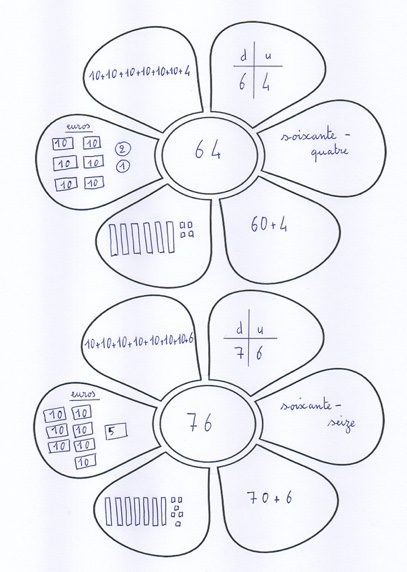 10+10+10+10+10+10+4
d u
6 4
euros
10 10
10 10
10 10
2
1
64
soixante-
quatre
60+4
10+10+10+10+10+10+10+6
d u
7 6
euros
10 10
10 10
10 10
10
5
76
soixante-
seize
70+6